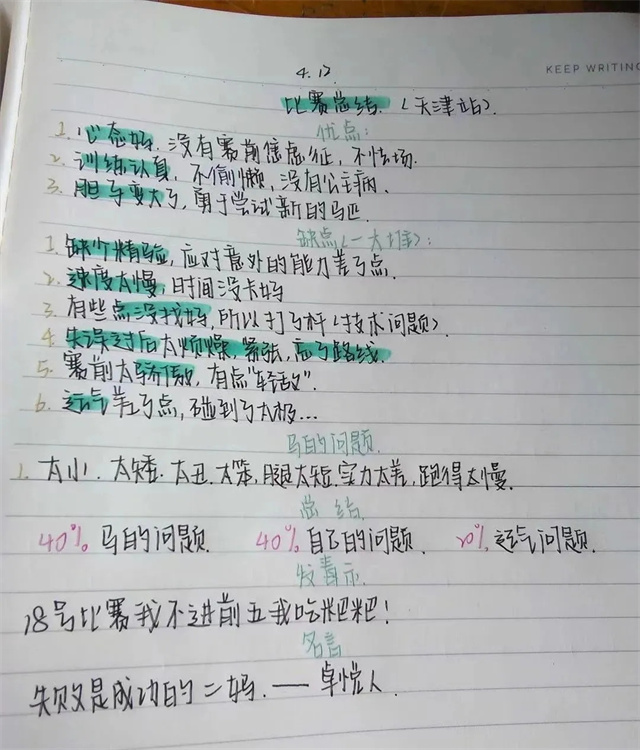 4.12
KEEP WRITING
比赛总结.(天津站).
优点:
1. 心态好, 没有赛前焦虑征, 不怯场.
2. 训练认真, 不偷懒, 没有公主病.
3. 胆子变大了, 勇于尝试新的马匹.
缺点(一大堆):
1. 缺少精验, 应对意外的能力差了点.
2. 速度太慢, 时间没卡好
3. 有些点没找好, 所以打了杆(技术问题).
4. 失误过后太烦燥, 紧张, 忘了路线.
5. 赛前太骄傲, 有点“轻敌”.
6. 运气差了点, 碰到了太极...
马的问题.
1. 太小. 太矮. 太丑. 太笨, 腿太短. 实力太差, 跑得太慢.
总结.
40% 马的问题. 40% 自己的问题. 20% 运气问题.
发毒示.
18号比赛我不进前五我吃粑粑!
名言
失败是成功的二妈. —— 卓悦人.